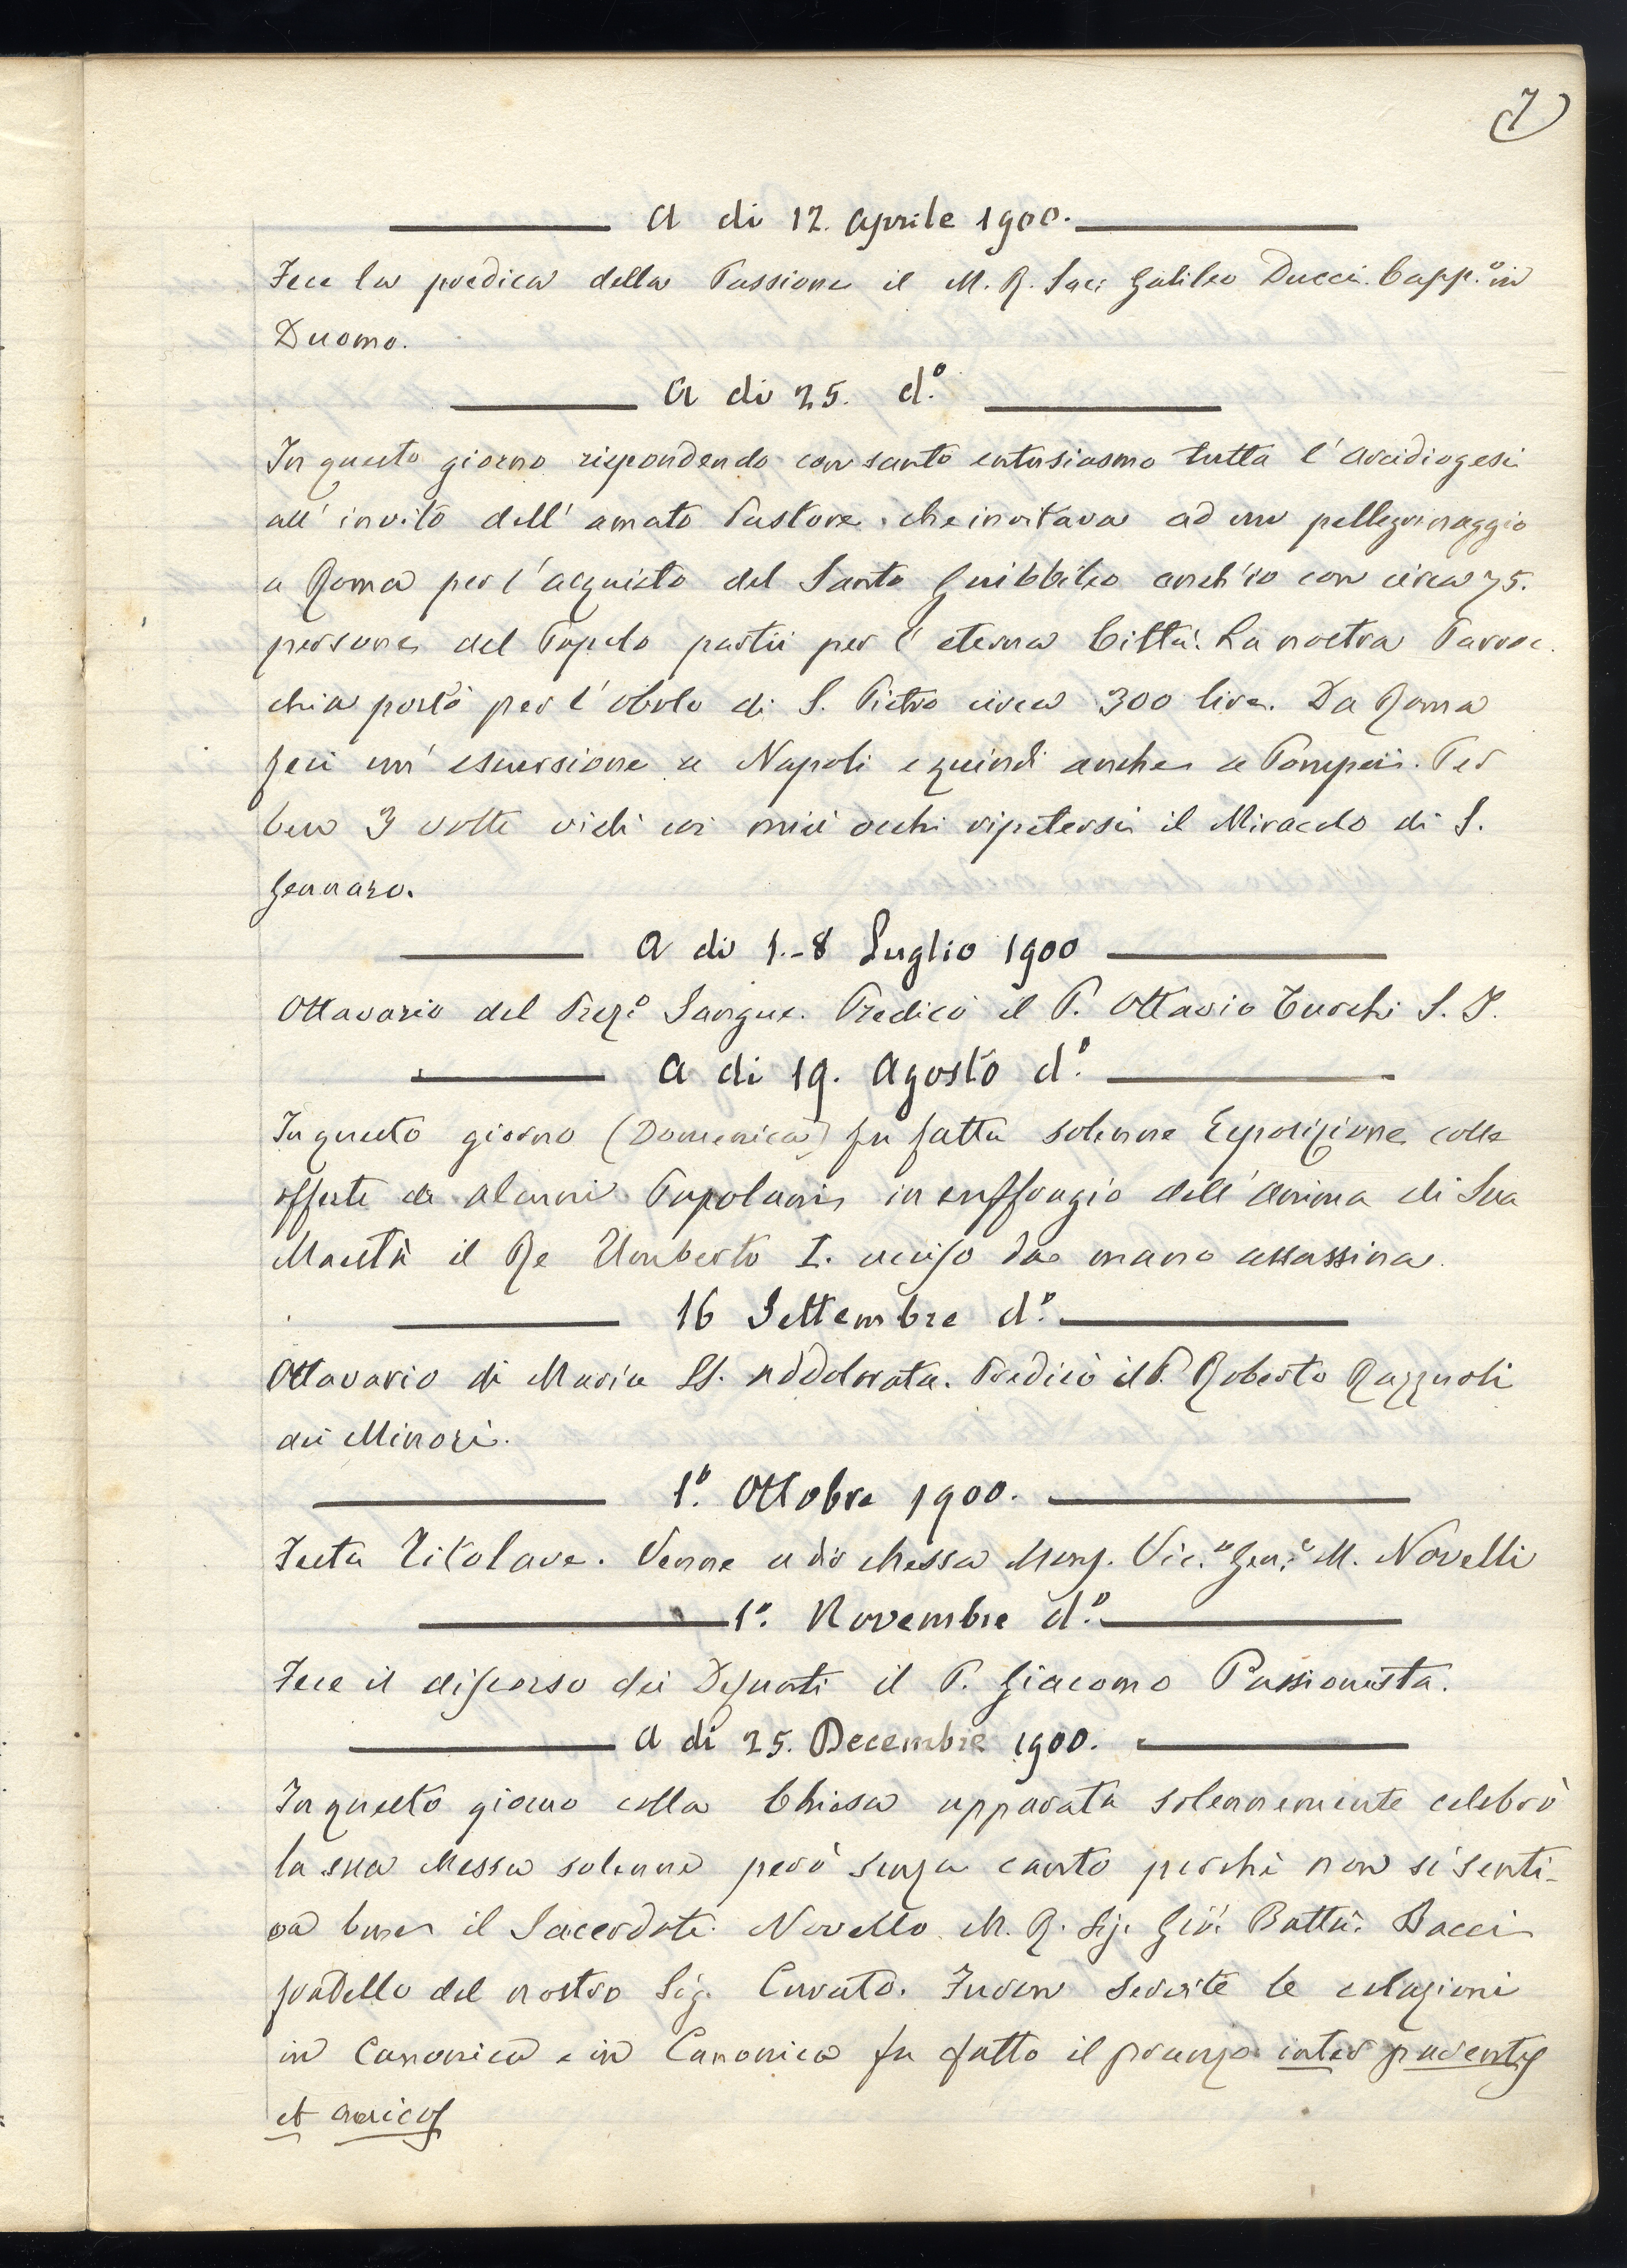 7
A di 12. Aprile 1900.
Fece la predica della Passione il M. R. Sac: Galileo Ducci. Capp.º in
Duomo.
A di 25. d.º
In questo giorno rispondendo con santo entusiasmo tutta l'arcidiogesi
all'invito dell'amato Pastore, che invitava ad un pellegrinaggio
a Roma per l'acquisto del Santo Guibbileo anch'io con circa 75.
persone del Popolo partii per l'eterna Città. La nostra Parroc
chia portò per l'obolo di S. Pietro circa 300 lire. Da Roma
feci un'escursione a Napoli e quindi anche a Pompeii. Per
ben 3 volte vidi coi miei occhi ripetersi il Miracolo di S.
Gennaro.
A di 1.-8 Luglio 1900
Ottavario del Prez.º Sangue. Predicò il P. Ottavio Turchi S. J.
A di 19. Agosto d.º
In questo giorno (Domenica) fu fatta solenne Esposizione colle
offerte di alcuni Popolani in suffragio dell'anima di Sua
Maestà il Re Umberto I. ucciso da mano assassina.
16 Settembre d.º
Ottavario di Maria SS. Addolorata. Predicò il P. Roberto Razzuoli
dei Minori.
1.º Ottobre 1900.
Festa Titolare. Venne a dir Messa Mons. Vic.º Gen.e M. Novelli
1.º Novembre d.º
Fece il discorso dei Defunti il P. Giacomo Passionista.
A di 25. Decembre 1900.
In questo giorno colla Chiesa apparata solennemente celebrò
la sua Messa solenne però senza canto perchè non si senti-
va bene il Sacerdote Novello M. R. Sig. Gio: Batta: Bacci
fratello del nostro Sig. Curato. Furon servite le colazioni
in Canonica e in Canonica fu fatto il pranzo inter parentes
et amicos